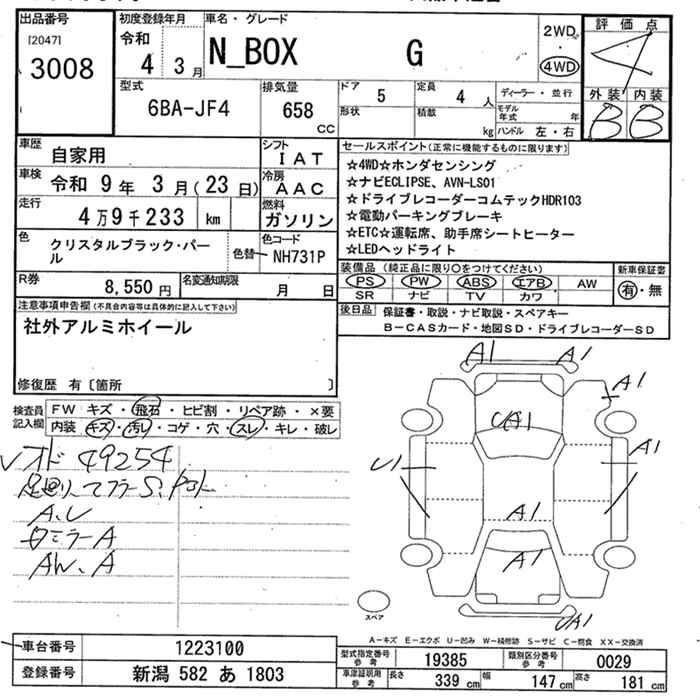 出品番号
[2047]
3008
初度登録年月
令和
4 3月
車名・グレード
N_BOX G
2WD
・
4WD
評価点
4
外装 内装
B B
型式
6BA-JF4
排気量
658
cc
ドア
5
定員
4 人
形状
積載
kg
ディーラー・並行
モデル年式 年
ハンドル 左・右
車歴
自家用
シフト
IAT
車検
令和 9年 3月(23日)
冷房
AAC
走行
4万9千233 km
燃料
ガソリン
色
クリスタルブラック・パール
色替
色コード
NH731P
R券
8,550円
名変通知期限
月 日
セールスポイント(正常に機能するものに限ります)
☆4WD☆ホンダセンシング
☆ナビECLIPSE、AVN-LS01
☆ドライブレコーダーコムテックHDR103
☆電動パーキングブレーキ
☆ETC☆運転席、助手席シートヒーター
☆LEDヘッドライト
装備品(純正品に限り○をつけてください)
PS PW ABS エアB AW
SR ナビ TV カワ
新車保証書
有・無
後日品
保証書・取説・ナビ取説・スペアキー
B-CASカード・地図SD・ドライブレコーダーSD
注意事項申告欄(不具合内容等は具体的に記入して下さい)
社外アルミホイール
修復歴 有〔箇所 〕
検査員
記入欄
FW キズ・飛石・ヒビ割・リペア跡・×要
内装 キズ・汚レ・コゲ・穴・スレ・キレ・破レ
オド 49254
足廻り、マフラーS、
A、U
ミラーA
AW、A
A1 A1
A1
UA1
A1
U1
A1
A1
UA1
スペア
A-キズ E-エクボ U-凹み W-補修跡 S-サビ C-腐食 XX-交換済
車台番号
1223100
登録番号
新潟 582 あ 1803
型式指定番号
参考
19385
類別区分番号
参考
0029
車庫証明用
参考
長さ
339 cm
幅
147 cm
高さ
181 cm